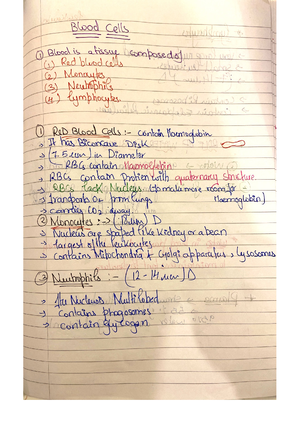 Blood Cells
① Blood is a tissue (composed of)
(1) Red blood cells
(2) Monocytes
(3) Neutrophils
(4) Lymphocytes
① Red Blood Cells :- contain Haemoglobin
→ It has Biconcave Disk
→ (7.5 um) in Diameter
→ RBCs contain Haemoglobin
→ RBCs contain Protein with quaternary structure
→ RBCs lack Nucleus (to make more room for Haemoglobin)
→ transports O₂ from lungs
→ carrying CO₂ away
② Monocytes :→ D
→ Nucleus are shaped like kidney or a bean
→ largest of the leukocytes
→ contains Mitochondria & Golgi apparatus, lysosomes
③ Neutrophils :- (12-14 um) D
→ the Nucleus Multilobed
→ contains phagosomes
→ contain glycogen